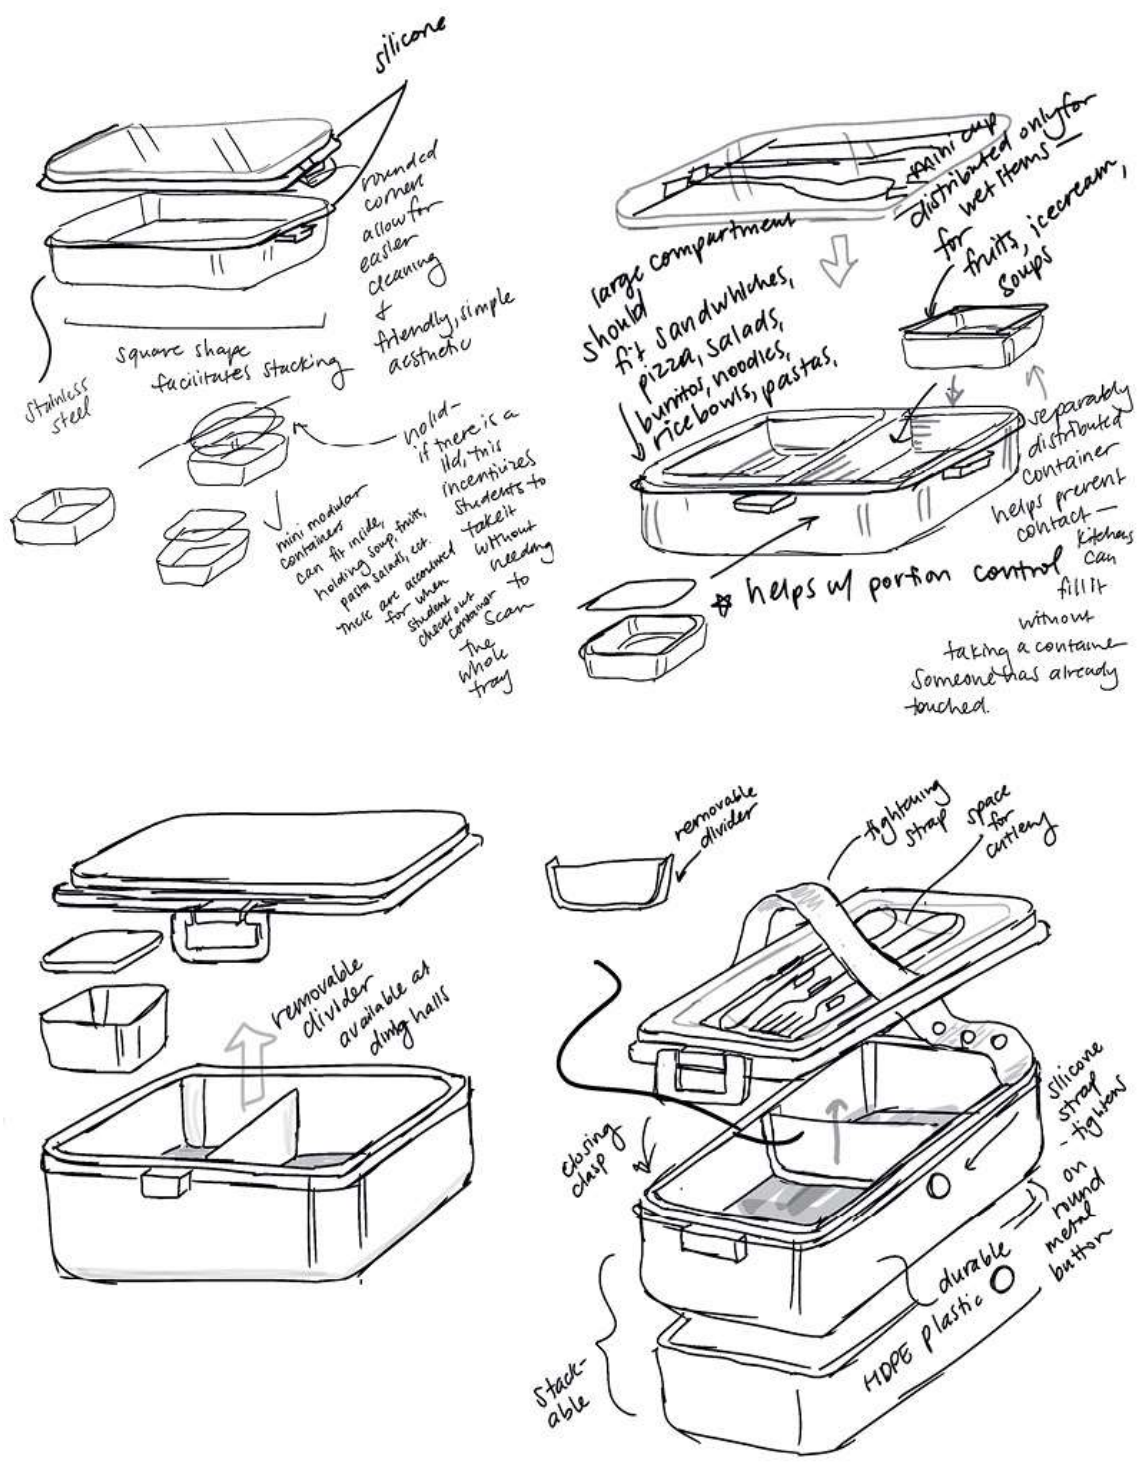 silicone
rounded
corners
allow for
easier
cleaning
+
friendly, simple
aesthetic
square shape
facilitates stacking
stainless
steel
no lid-
if there is a
lid, this
incentivizes
students to
take it
without
needing
to
scan
the
whole
tray
mini modular
containers
can fit inside,
holding soup, fruits,
pasta salads, ect.
these are accounted
for when
student
checks out
container
mini cup
distributed only for
wet items —
for
fruits, icecream,
soups
large compartment
should
fit sandwhiches,
pizza, salads,
burritos, noodles,
rice bowls, pastas,
separably
distributed
container
helps prevent
contact —
kitchens
can
fill it
without
taking a container
someone has already
touched.
helps w/ portion control
removable
divider
available at
dinig halls
removable
divider
tightening
strap
space
for
cutlery
closing
clasp
silicone
strap
- tightens
on
round
metal
button
durable
HDPE plastic
Stack-
able